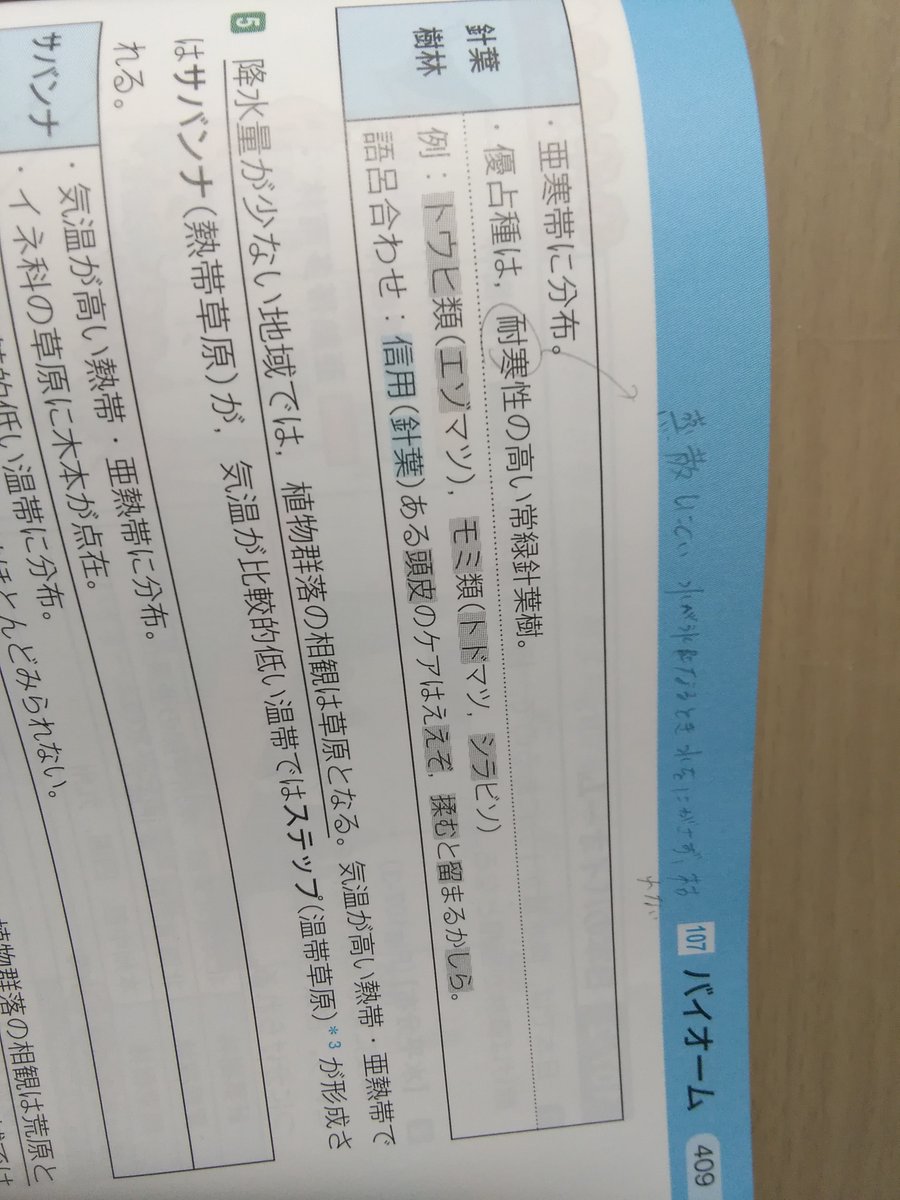 107 バイオーム 409
蒸散しにくい 水が氷になるとき水をにがさず、
針葉樹林
・亜寒帯に分布。
・優占種は，耐寒性の高い常緑針葉樹。
例：トウヒ類(エゾマツ)，モミ類(トドマツ，シラビソ)
語呂合わせ：信用(針葉)ある頭皮のケアはええぞ，揉むと留まるかしら。
5 降水量が少ない地域では，植物群落の相観は草原となる。気温が高い熱帯・亜熱帯で
はサバンナ(熱帯草原)が，気温が比較的低い温帯ではステップ(温帯草原)*3が形成さ
れる。
サバンナ
・気温が高い熱帯・亜熱帯に分布。
・イネ科の草原に木本が点在。
的低い温帯に分布。
ほとんどみられない。
植物群落の相観は荒原と